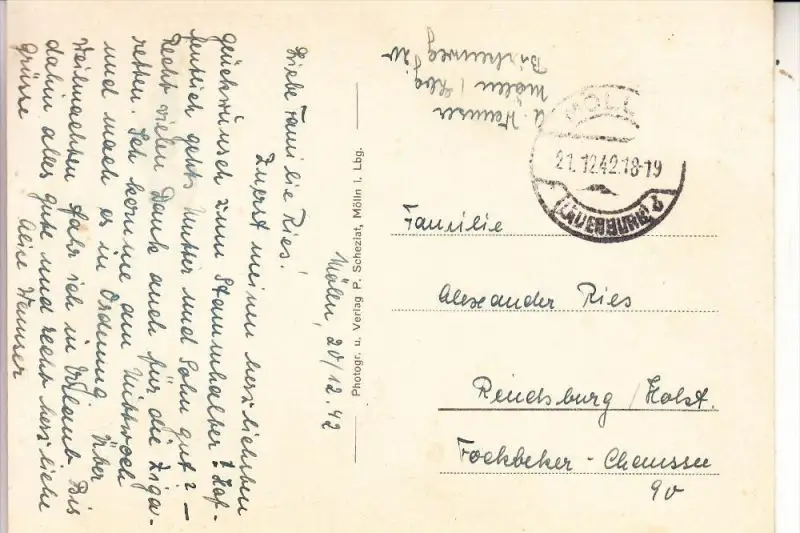 Mölln, 20/12.42
Liebe Familie Ries!
Zuerst meinen herzlichsten
glückwunsch zum Stammhalter! Hof-
fentlich gehts Mutter und Sohn gut? –
Recht vielen Dank auch für die Ziga-
retten. Ich komme am Mittwoch
und mach es in Ordnung. Über
Weihnachten fahr ich in Urlaub. Bis
dahin alles gute und recht herzliche
grüsse
Photogr. u. Verlag P. Schezlat, Mölln i. Lbg.
A.
Mölln / Lbg
Birkenweg
MÖLL
21.12.42.18-19
(LAUENBURG) d
Familie
Alexander Ries
Rendsburg / Holst.
Fockbeker - Chaussee
90